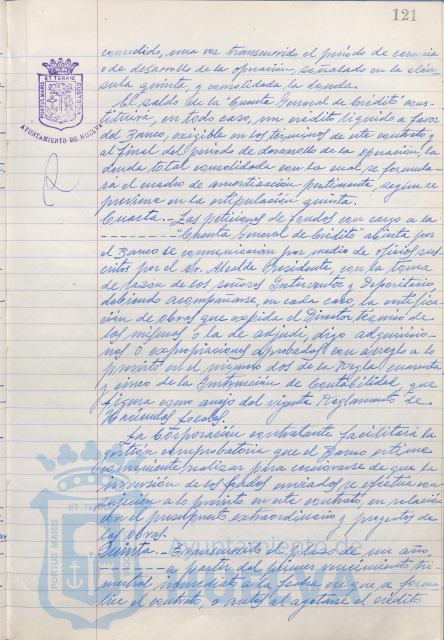 121
concedido, una vez transcurrido el período de carencia
o de desarrollo de la operación, señalado en la cláu-
sula quinta, y consolidada la deuda.
El saldo de la "Cuenta General de Crédito" cons-
tituirá, en todo caso, un crédito líquido a favor
del Banco, exigible en los términos de este contrato y
al final del período de desarrollo de la operación, la
deuda total consolidada con la cual se formula-
rá el cuadro de amortización pertinente, según se
previene en la estipulación quinta.
Cuarta.- Las peticiones de fondos con cargo a la
--------- "Cuenta General de Crédito" abierta por
el Banco se comunicarán por medio de oficios sus-
critos por el Sr. Alcalde Presidente, con la toma
de razón de los señores Interventor y Depositario
debiendo acompañarse, en cada caso, la certifica-
ción de obras que expida el Director técnico de
las mismas o la de adjudi, digo adquisicio-
nes o expropiaciones aprobadas con arreglo a lo
previsto en el número dos de la Regla cuarenta
y cinco de la Instrucción de Contabilidad, que
figura como anejo del vigente Reglamento de
Haciendas Locales.
La Corporación contratante facilitará la
gestión comprobatoria que el Banco estime
realizar para cerciorarse de que la
inversión de los fondos enviados se efectúa con
sujeción a lo previsto en este contrato en relación
con el presupuesto extraordinario y proyectos de
las obras.
Quinta.- Transcurrido el plazo de un año,
--------- a partir del primer vencimiento tri-
mestral inmediato a la fecha en que se forma-
lice el contrato, o antes al agotarse el crédito
PORTUS MARIS ET TERRAE CUSTODIA
AYUNTAMIENTO DE HUELVA
Ayuntamiento de
HUELVA
PORTUS MARIS
ET TERRAE